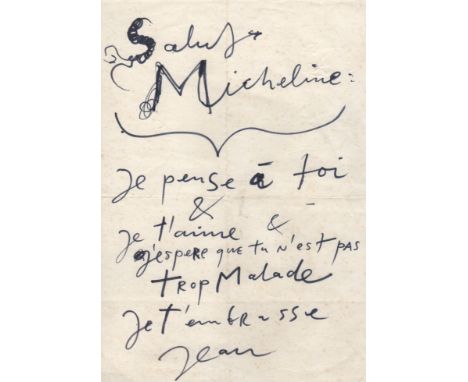 Salut
Micheline:
Je pense à toi
&
Je t'aime &
j'espere que tu n'est pas
trop malade
Je t'embrasse
Jean